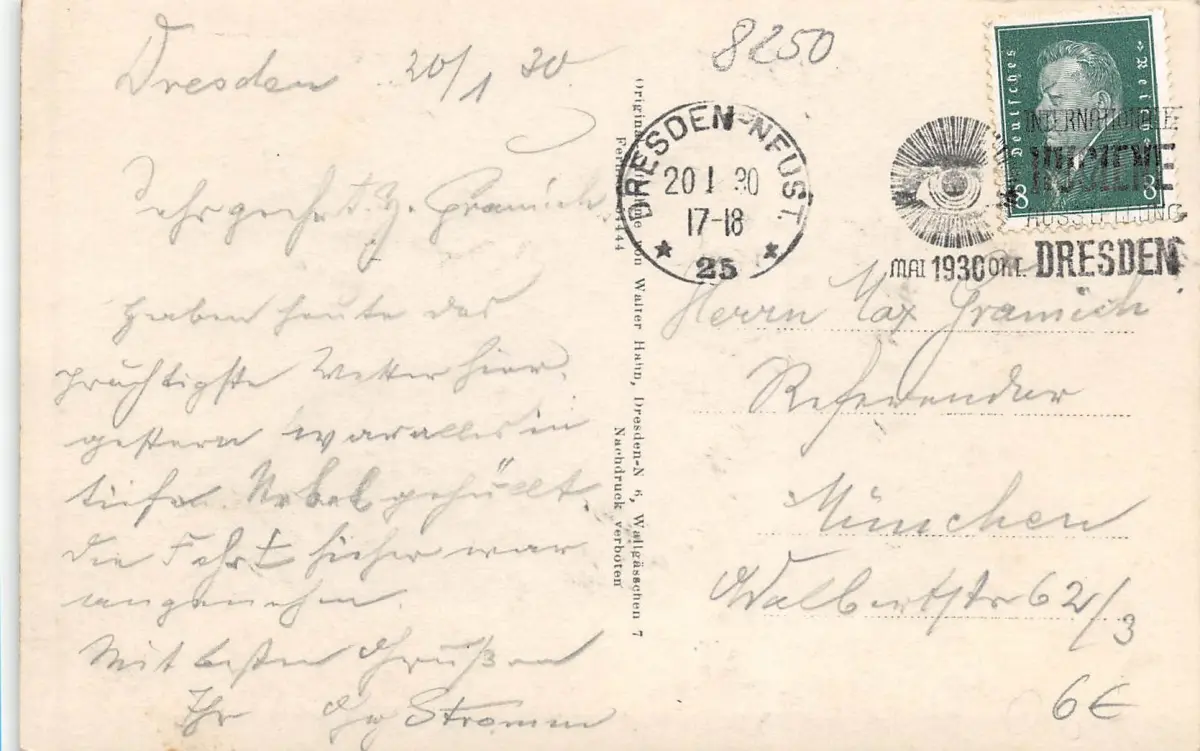 Dresden 20/1 30
Sehr geehrt. H. Gramich.
Haben heute das
prächtigste Wetter hier,
gestern war alles in
tiefe Nebel gehüllt.
Die Fahrt hieher war
angenehm.
Mit besten Grüßen
Ihr Stromm
8250
DRESDEN-NEUST.
20 1 30
17-18
* 25 *
Deutsches Reich
8 8
INTERNATIONALE
HYGIENE
AUSSTELLUNG
MAI 1930 OKT. DRESDEN
Walter Hahn, Dresden-N 6, Wallgässchen 7
Nachdruck verboten
Herrn Max Gramich
Referendar
München
62/3
6€